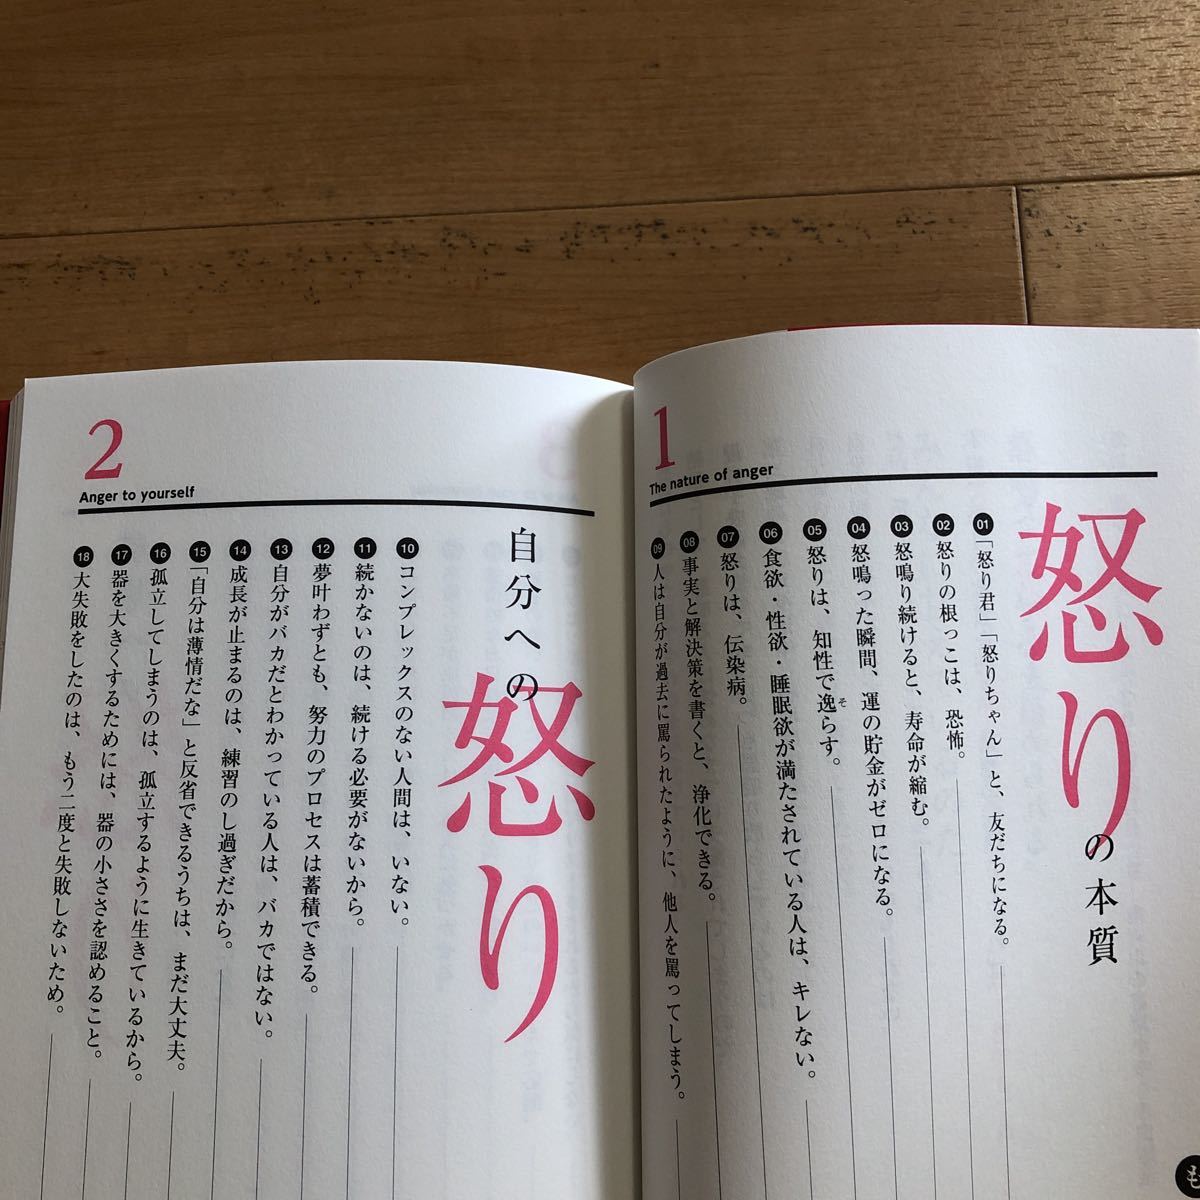 1
The nature of anger
怒りの本質
01 「怒り君」「怒りちゃん」と、友だちになる。
02 怒りの根っこは、恐怖。
03 怒鳴り続けると、寿命が縮む。
04 怒鳴った瞬間、運の貯金がゼロになる。
05 怒りは、知性で逸らす。
そ
06 食欲・性欲・睡眠欲が満たされている人は、キレない。
07 怒りは、伝染病。
08 事実と解決策を書くと、浄化できる。
09 人は自分が過去に罵られたように、他人を罵ってしまう。
も
2
Anger to yourself
自分への怒り
10 コンプレックスのない人間は、いない。
11 続かないのは、続ける必要がないから。
12 夢叶わずとも、努力のプロセスは蓄積できる。
13 自分がバカだとわかっている人は、バカではない。
14 成長が止まるのは、練習のし過ぎだから。
15 「自分は薄情だな」と反省できるうちは、まだ大丈夫。
16 孤立してしまうのは、孤立するように生きているから。
17 器を大きくするためには、器の小ささを認めること。
18 大失敗をしたのは、もう二度と失敗しないため。